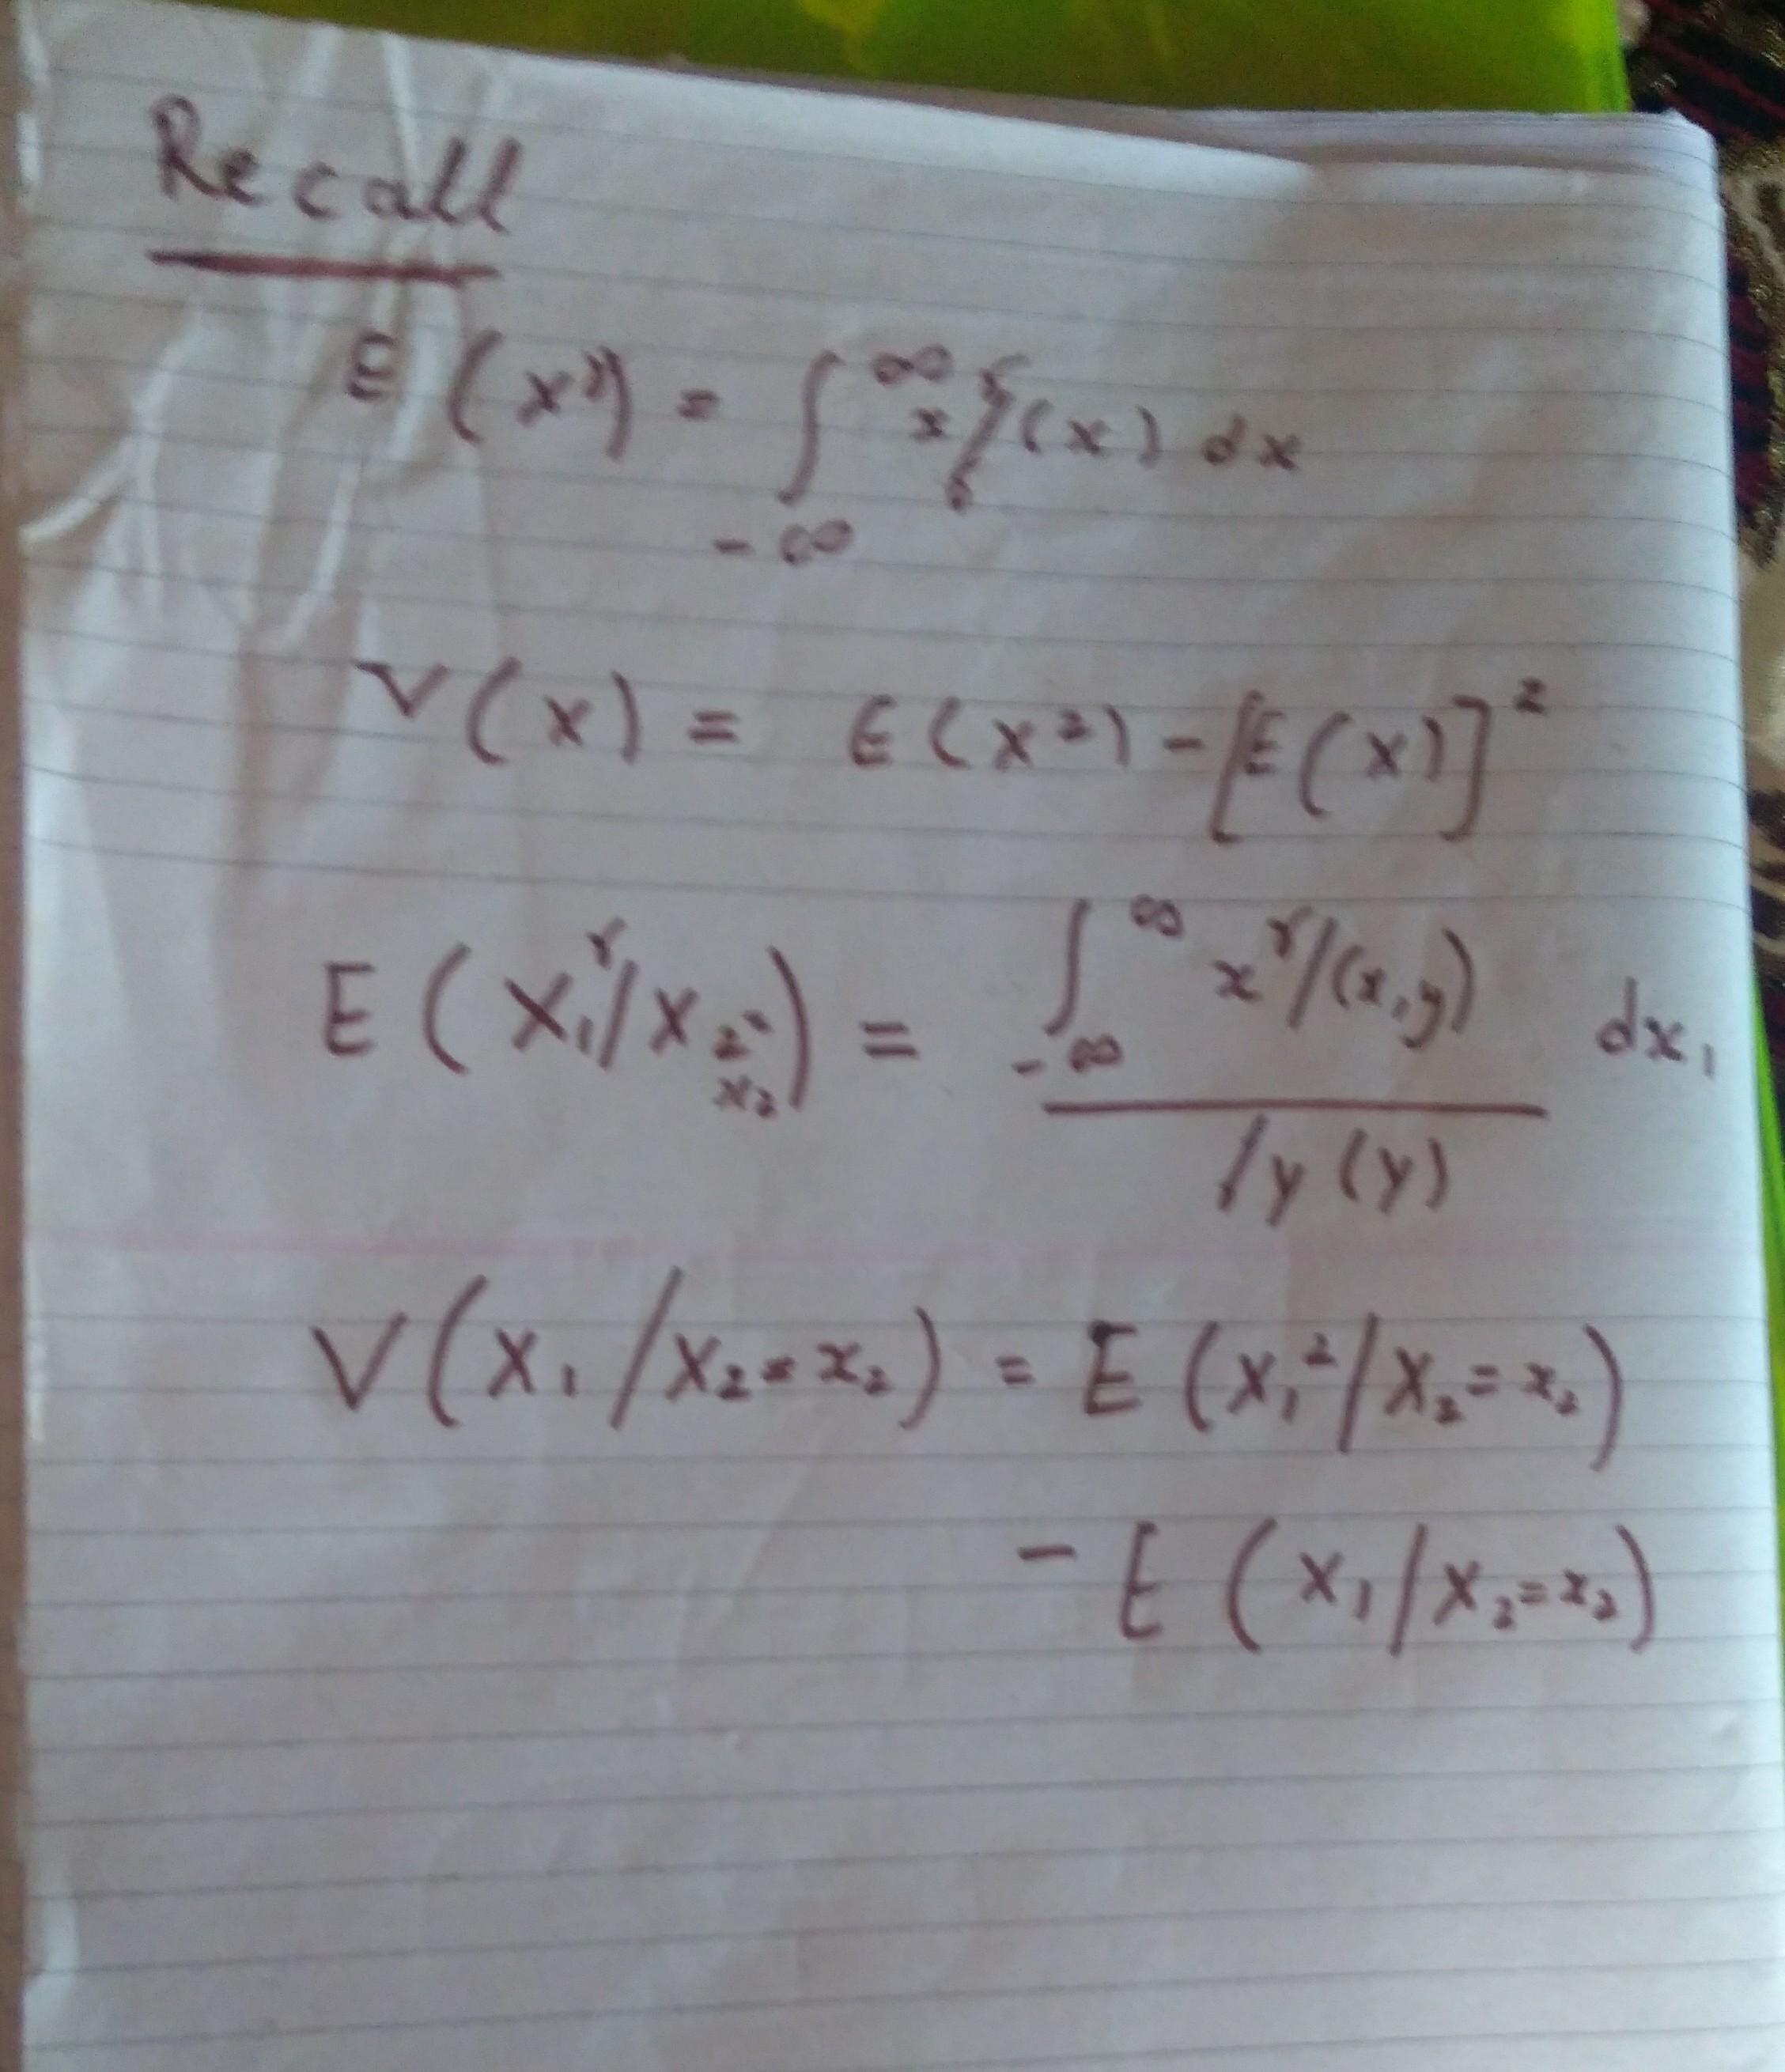 Recall
E (x^r) = ∫_{-∞}^{∞} x^r f(x) dx
V(x) = E(x²) - [E(x)]²
E (X₁^r/X₂=x₂) = ∫_{-∞}^{∞} x^r f(x,y) / f_y(y) dx₁
V(X₁/X₂=x₂) = E(X₁²/X₂=x₂)
- E (X₁/X₂=x₂)